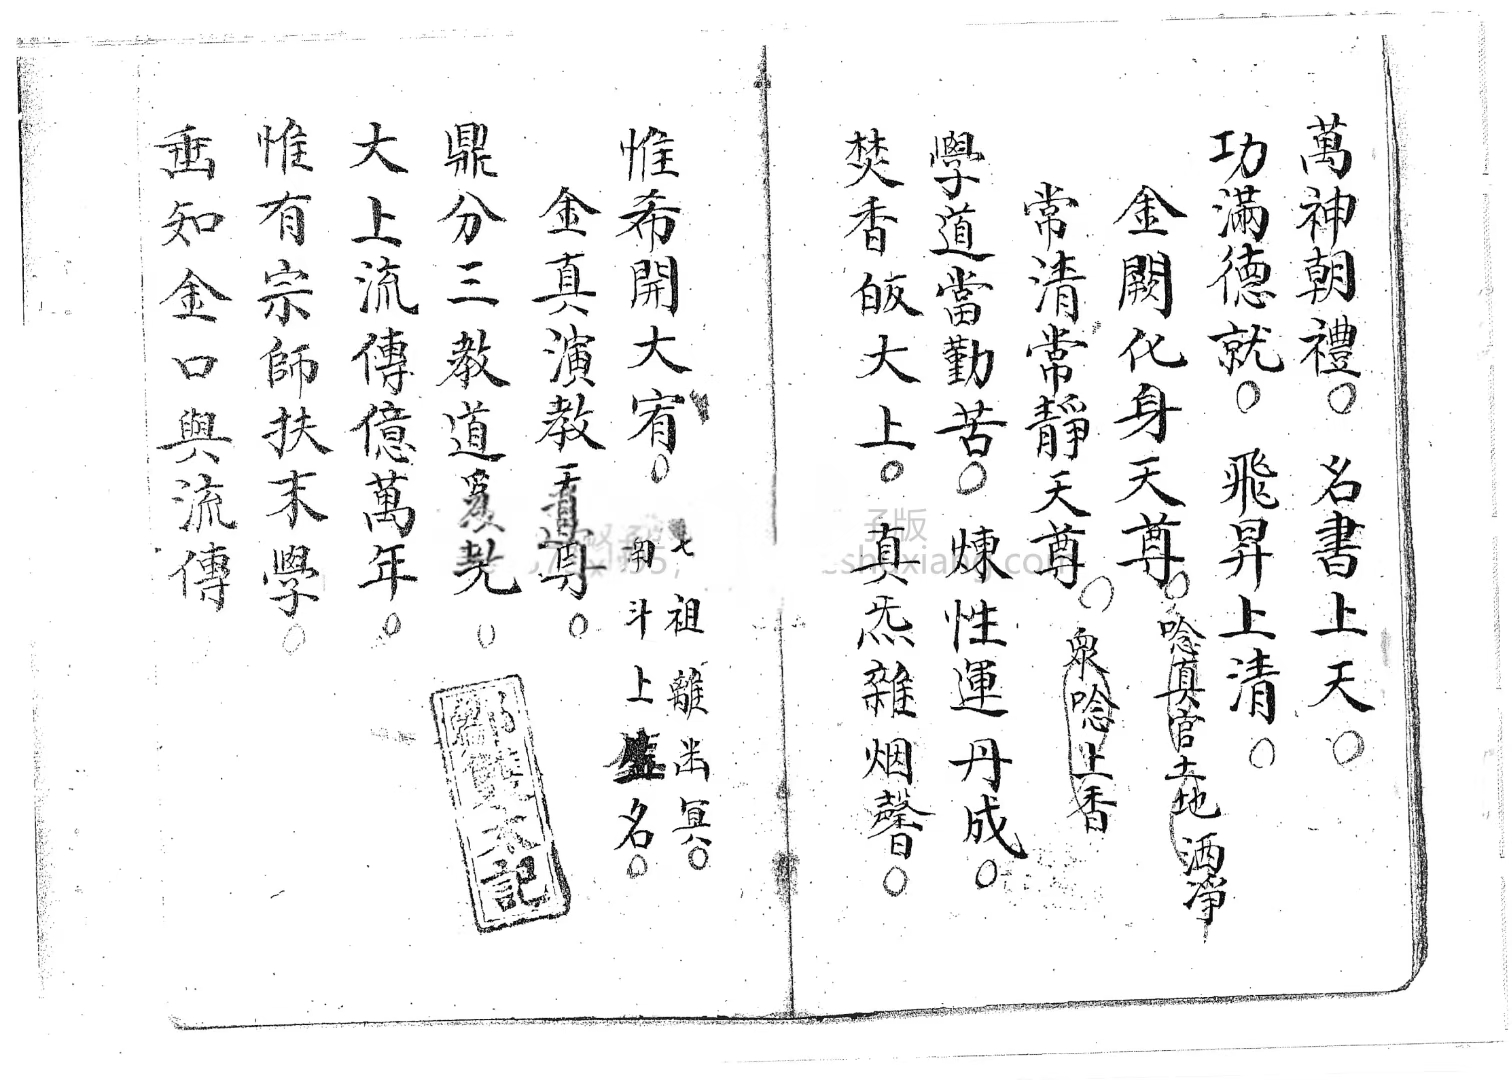 萬神朝禮○名書上天○
功滿德就○飛昇上清○
金闕化身天尊○唸真官土地洒淨
常清常靜天尊○衆唸上香
學道當勤苦○煉性運丹成○
焚香皈大上○真炁雜烟馨○
惟希開大宥○七祖離幽冥○
南斗上名○
金真演教天尊○
鼎分三教道爲先○
大上流傳億萬年○
惟有宗師扶末學○
垂知金口與流傳
記